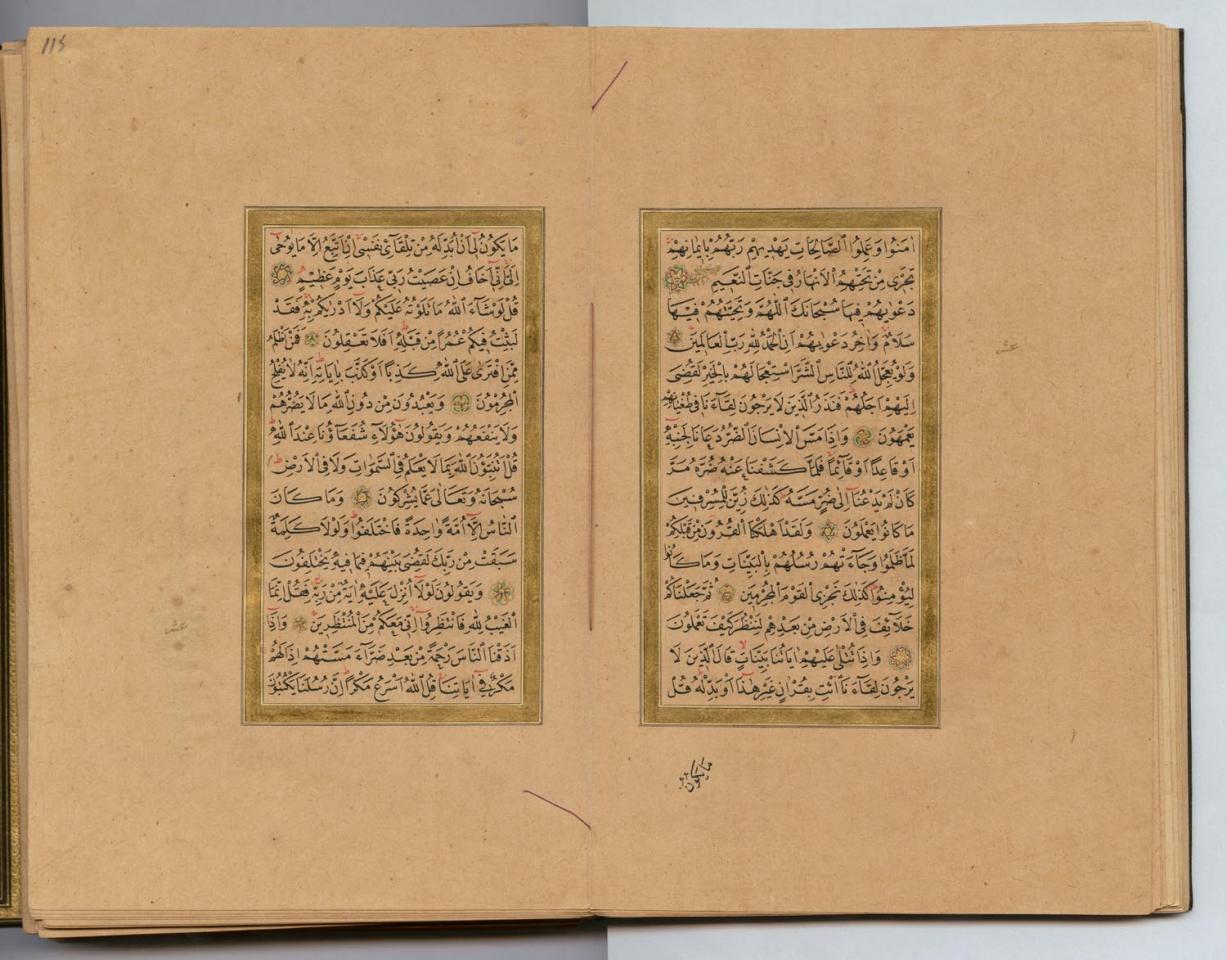 اٰمَنُوا وَعَمِلُوا الصَّالِحَاتِ يَهْدِيهِمْ رَبُّهُمْ بِاِيمَانِهِمْ
تَجْرِي مِنْ تَحْتِهِمُ الْاَنْهَارُ فِي جَنَّاتِ النَّعِيمِ
دَعْوٰيهُمْ فِيهَا سُبْحَانَكَ اللّٰهُمَّ وَتَحِيَّتُهُمْ فِيهَا
سَلَامٌ وَاٰخِرُ دَعْوٰيهُمْ اَنِ الْحَمْدُ لِلّٰهِ رَبِّ الْعَالَمِينَ
وَلَوْ يُعَجِّلُ اللّٰهُ لِلنَّاسِ الشَّرَّ اسْتِعْجَالَهُمْ بِالْخَيْرِ لَقُضِيَ
اِلَيْهِمْ اَجَلُهُمْ فَنَذَرُ الَّذِينَ لَا يَرْجُونَ لِقَاءَنَا فِي طُغْيَانِهِمْ
يَعْمَهُونَ وَاِذَا مَسَّ الْاِنْسَانَ الضُّرُّ دَعَانَا لِجَنْبِهِ
اَوْ قَاعِدًا اَوْ قَائِمًا فَلَمَّا كَشَفْنَا عَنْهُ ضُرَّهُ مَرَّ
كَاَنْ لَمْ يَدْعُنَا اِلٰى ضُرٍّ مَسَّهُ كَذٰلِكَ زُيِّنَ لِلْمُسْرِفِينَ
مَا كَانُوا يَعْمَلُونَ وَلَقَدْ اَهْلَكْنَا الْقُرُونَ مِنْ قَبْلِكُمْ
لَمَّا ظَلَمُوا وَجَاءَتْهُمْ رُسُلُهُمْ بِالْبَيِّنَاتِ وَمَا كَانُوا
لِيُؤْمِنُوا كَذٰلِكَ نَجْزِي الْقَوْمَ الْمُجْرِمِينَ ثُمَّ جَعَلْنَاكُمْ
خَلَائِفَ فِي الْاَرْضِ مِنْ بَعْدِهِمْ لِنَنْظُرَ كَيْفَ تَعْمَلُونَ
وَاِذَا تُتْلٰى عَلَيْهِمْ اٰيَاتُنَا بَيِّنَاتٍ قَالَ الَّذِينَ لَا
يَرْجُونَ لِقَاءَنَا ائْتِ بِقُرْاٰنٍ غَيْرِ هٰذَا اَوْ بَدِّلْهُ قُلْ
مَا يَكُونُ
عشر
115
مَا يَكُونُ لِي اَنْ اُبَدِّلَهُ مِنْ تِلْقَائِ نَفْسِي اِنْ اَتَّبِعُ اِلَّا مَا يُوحٰى
اِلَيَّ اِنِّي اَخَافُ اِنْ عَصَيْتُ رَبِّي عَذَابَ يَوْمٍ عَظِيمٍ
قُلْ لَوْ شَاءَ اللّٰهُ مَا تَلَوْتُهُ عَلَيْكُمْ وَلَا اَدْرٰيكُمْ بِهِ فَقَدْ
لَبِثْتُ فِيكُمْ عُمُرًا مِنْ قَبْلِهِ اَفَلَا تَعْقِلُونَ فَمَنْ اَظْلَمُ
مِمَّنِ افْتَرٰى عَلَى اللّٰهِ كَذِبًا اَوْ كَذَّبَ بِاٰيَاتِهِ اِنَّهُ لَا يُفْلِحُ
الْمُجْرِمُونَ وَيَعْبُدُونَ مِنْ دُونِ اللّٰهِ مَا لَا يَضُرُّهُمْ
وَلَا يَنْفَعُهُمْ وَيَقُولُونَ هٰؤُلَاءِ شُفَعَاؤُنَا عِنْدَ اللّٰهِ
قُلْ اَتُنَبِّؤُنَ اللّٰهَ بِمَا لَا يَعْلَمُ فِي السَّمٰوَاتِ وَلَا فِي الْاَرْضِ
سُبْحَانَهُ وَتَعَالٰى عَمَّا يُشْرِكُونَ وَمَا كَانَ
النَّاسُ اِلَّا اُمَّةً وَاحِدَةً فَاخْتَلَفُوا وَلَوْلَا كَلِمَةٌ
سَبَقَتْ مِنْ رَبِّكَ لَقُضِيَ بَيْنَهُمْ فِيمَا فِيهِ يَخْتَلِفُونَ
وَيَقُولُونَ لَوْلَا اُنْزِلَ عَلَيْهِ اٰيَةٌ مِنْ رَبِّهِ فَقُلْ اِنَّمَا
الْغَيْبُ لِلّٰهِ فَانْتَظِرُوا اِنِّي مَعَكُمْ مِنَ الْمُنْتَظِرِينَ وَاِذَا
اَذَقْنَا النَّاسَ رَحْمَةً مِنْ بَعْدِ ضَرَّاءَ مَسَّتْهُمْ اِذَا لَهُمْ
مَكْرٌ فِي اٰيَاتِنَا قُلِ اللّٰهُ اَسْرَعُ مَكْرًا اِنَّ رُسُلَنَا يَكْتُبُونَ